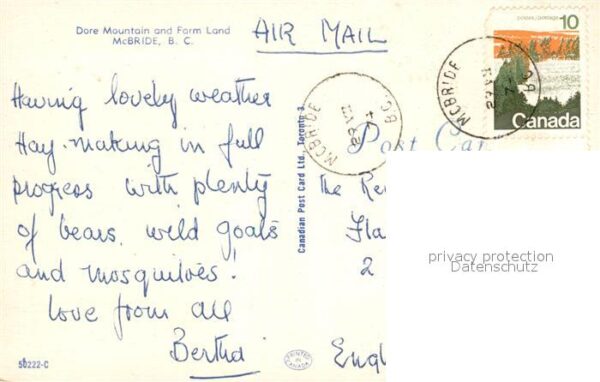 Dore Mountain and Farm Land
McBRIDE, B. C.
AIR MAIL
Having lovely weather
Hay-making in full
progress with plenty
of bears, wild goats
and mosquitoes!
Love from all
Bertha
50222-C
Canadian Post Card Ltd., Toronto 3
PRINTED IN CANADA
McBRIDE
B.C.
Post Car
The Re
Fla
2
Engl
10
Canada
McBRIDE
privacy protection
Datenschutz